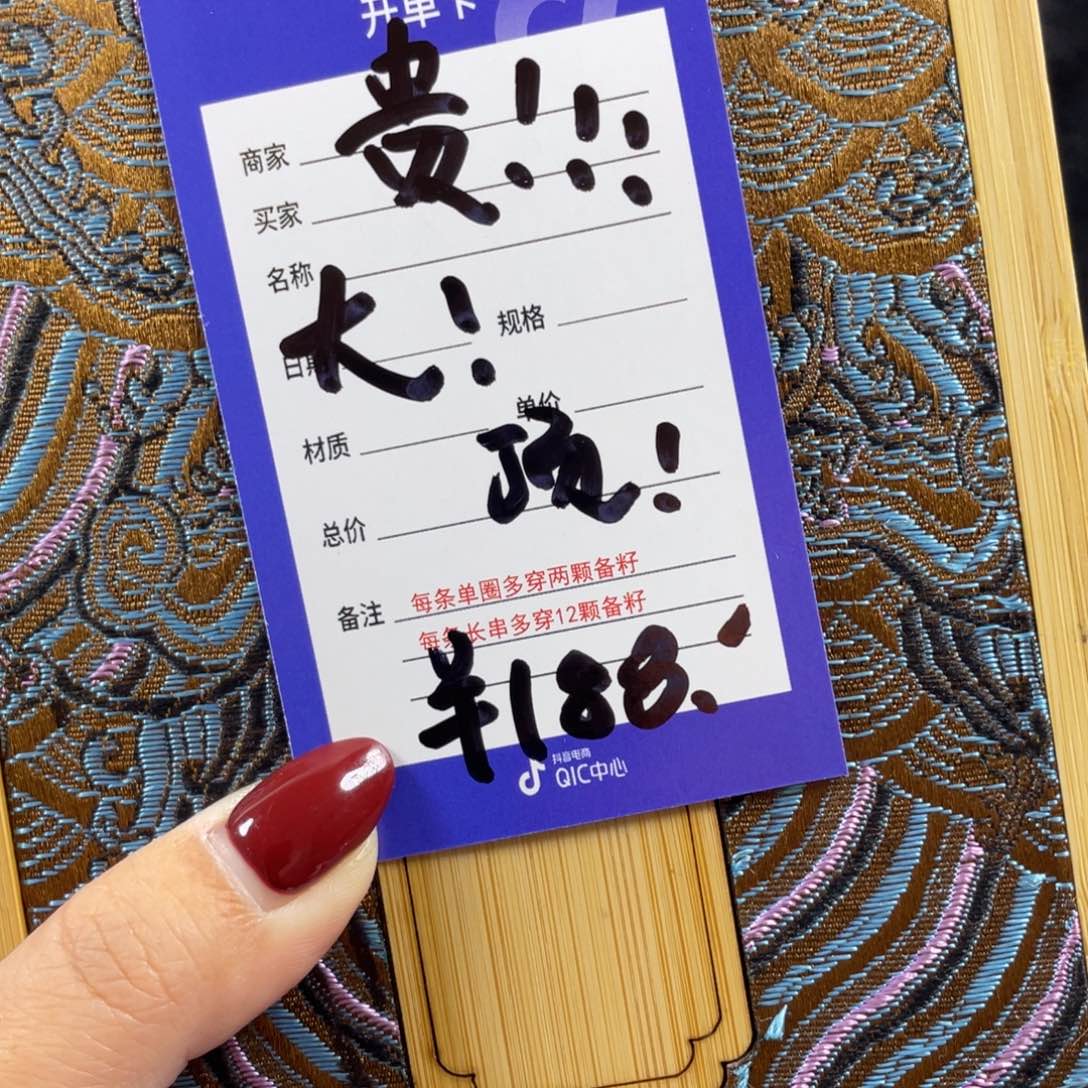 开单卡
贵!!!
商家
买家
名称
大!
规格
日期
单价
材质
顶!
总价
备注 每条单圈多穿两颗备籽
每条长串多穿12颗备籽
¥188.
抖音电商
QIC中心